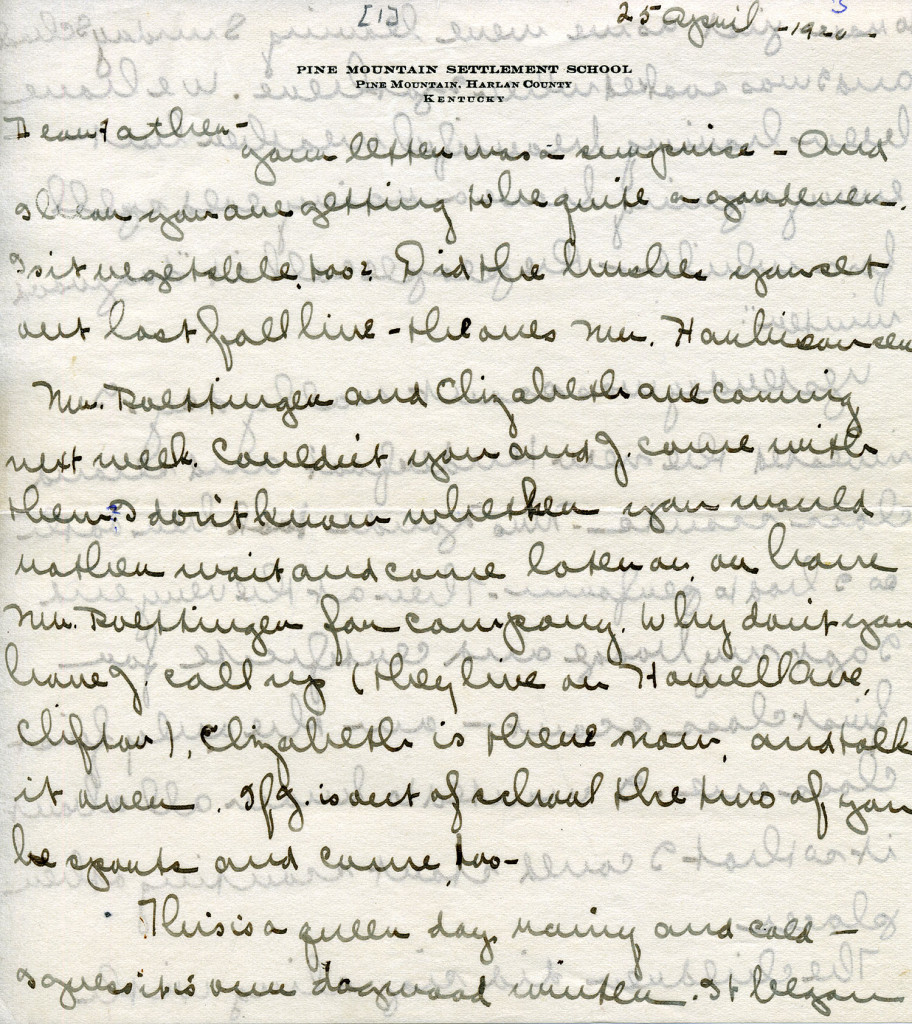 [1]
25 April -1920-
3
PINE MOUNTAIN SETTLEMENT SCHOOL
PINE MOUNTAIN, HARLAN COUNTY
KENTUCKY
Dear Father-
Your letter was a surprise - And
I hear you are getting to be quite a gardener.
Is it vegetable, too? Did the bushes you set
out last fall live - the ones Mr. Harbison sen
Mr. Roettinger and Elizabeth are coming
next week. Couldn't you and J. come with
them? I don't know whether you would
rather wait and come later on, or have
Mr. Roettinger for company. Why don't you
have J. call up (they live on Howell Ave,
Clifton), Elizabeth is there now, and talk
it over. If J. is out of school the two of you
be sports and come, too-
This is a queer day, rainy and cold -
I guess it is our dogwood winter. It began